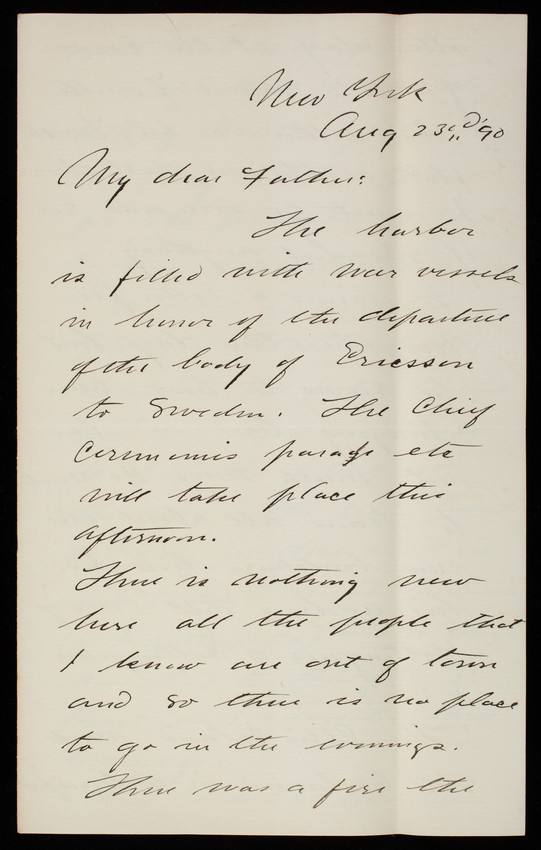 New York
Aug 23rd '90
My dear Father:
The harbor
is filled with war vessels
in honor of the departure
of the body of Ericsson
to Sweden. The Chief
Ceremonies parade etc
will take place this
afternoon.
There is nothing new
here all the people that
I know are out of town
and so there is no place
to go in the evenings.
There was a fire the